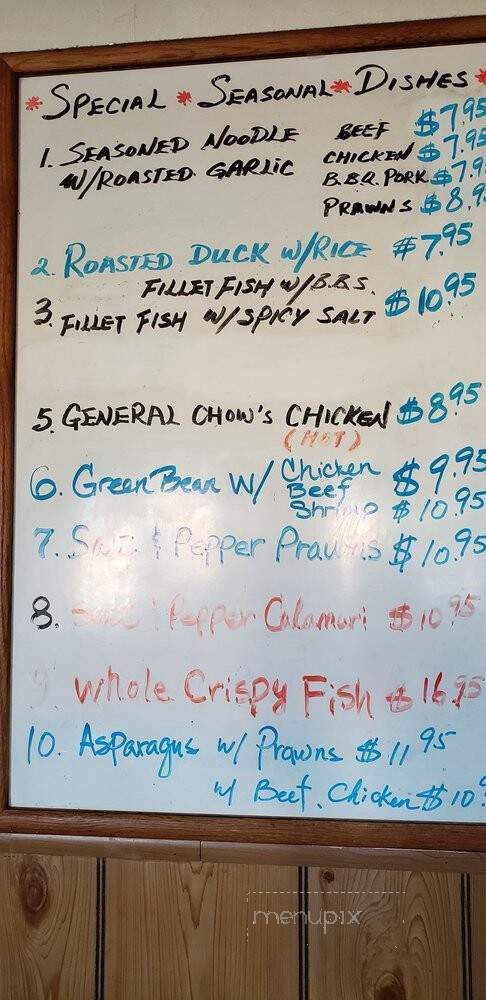 * SPECIAL * SEASONAL * DISHES *
1. SEASONED NOODLE BEEF $7.95
W/ROASTED GARLIC CHICKEN $7.95
B.B.Q. PORK $7.9
PRAWNS $8.9
2. ROASTED DUCK W/RICE $7.95
FILLET FISH W/B.B.S.
3. FILLET FISH W/SPICY SALT $10.95
5. GENERAL CHOW'S CHICKEN $8.95
(HOT)
6. Green Bean W/ Chicken $9.95
Beef
Shrimp $10.95
7. Salt & Pepper Prawns $10.95
8. Salt & Pepper Calamari $10.95
9. Whole Crispy Fish $16.95
10. Asparagus w/ Prawns $11.95
w/ Beef. Chicken $10.9
menupix